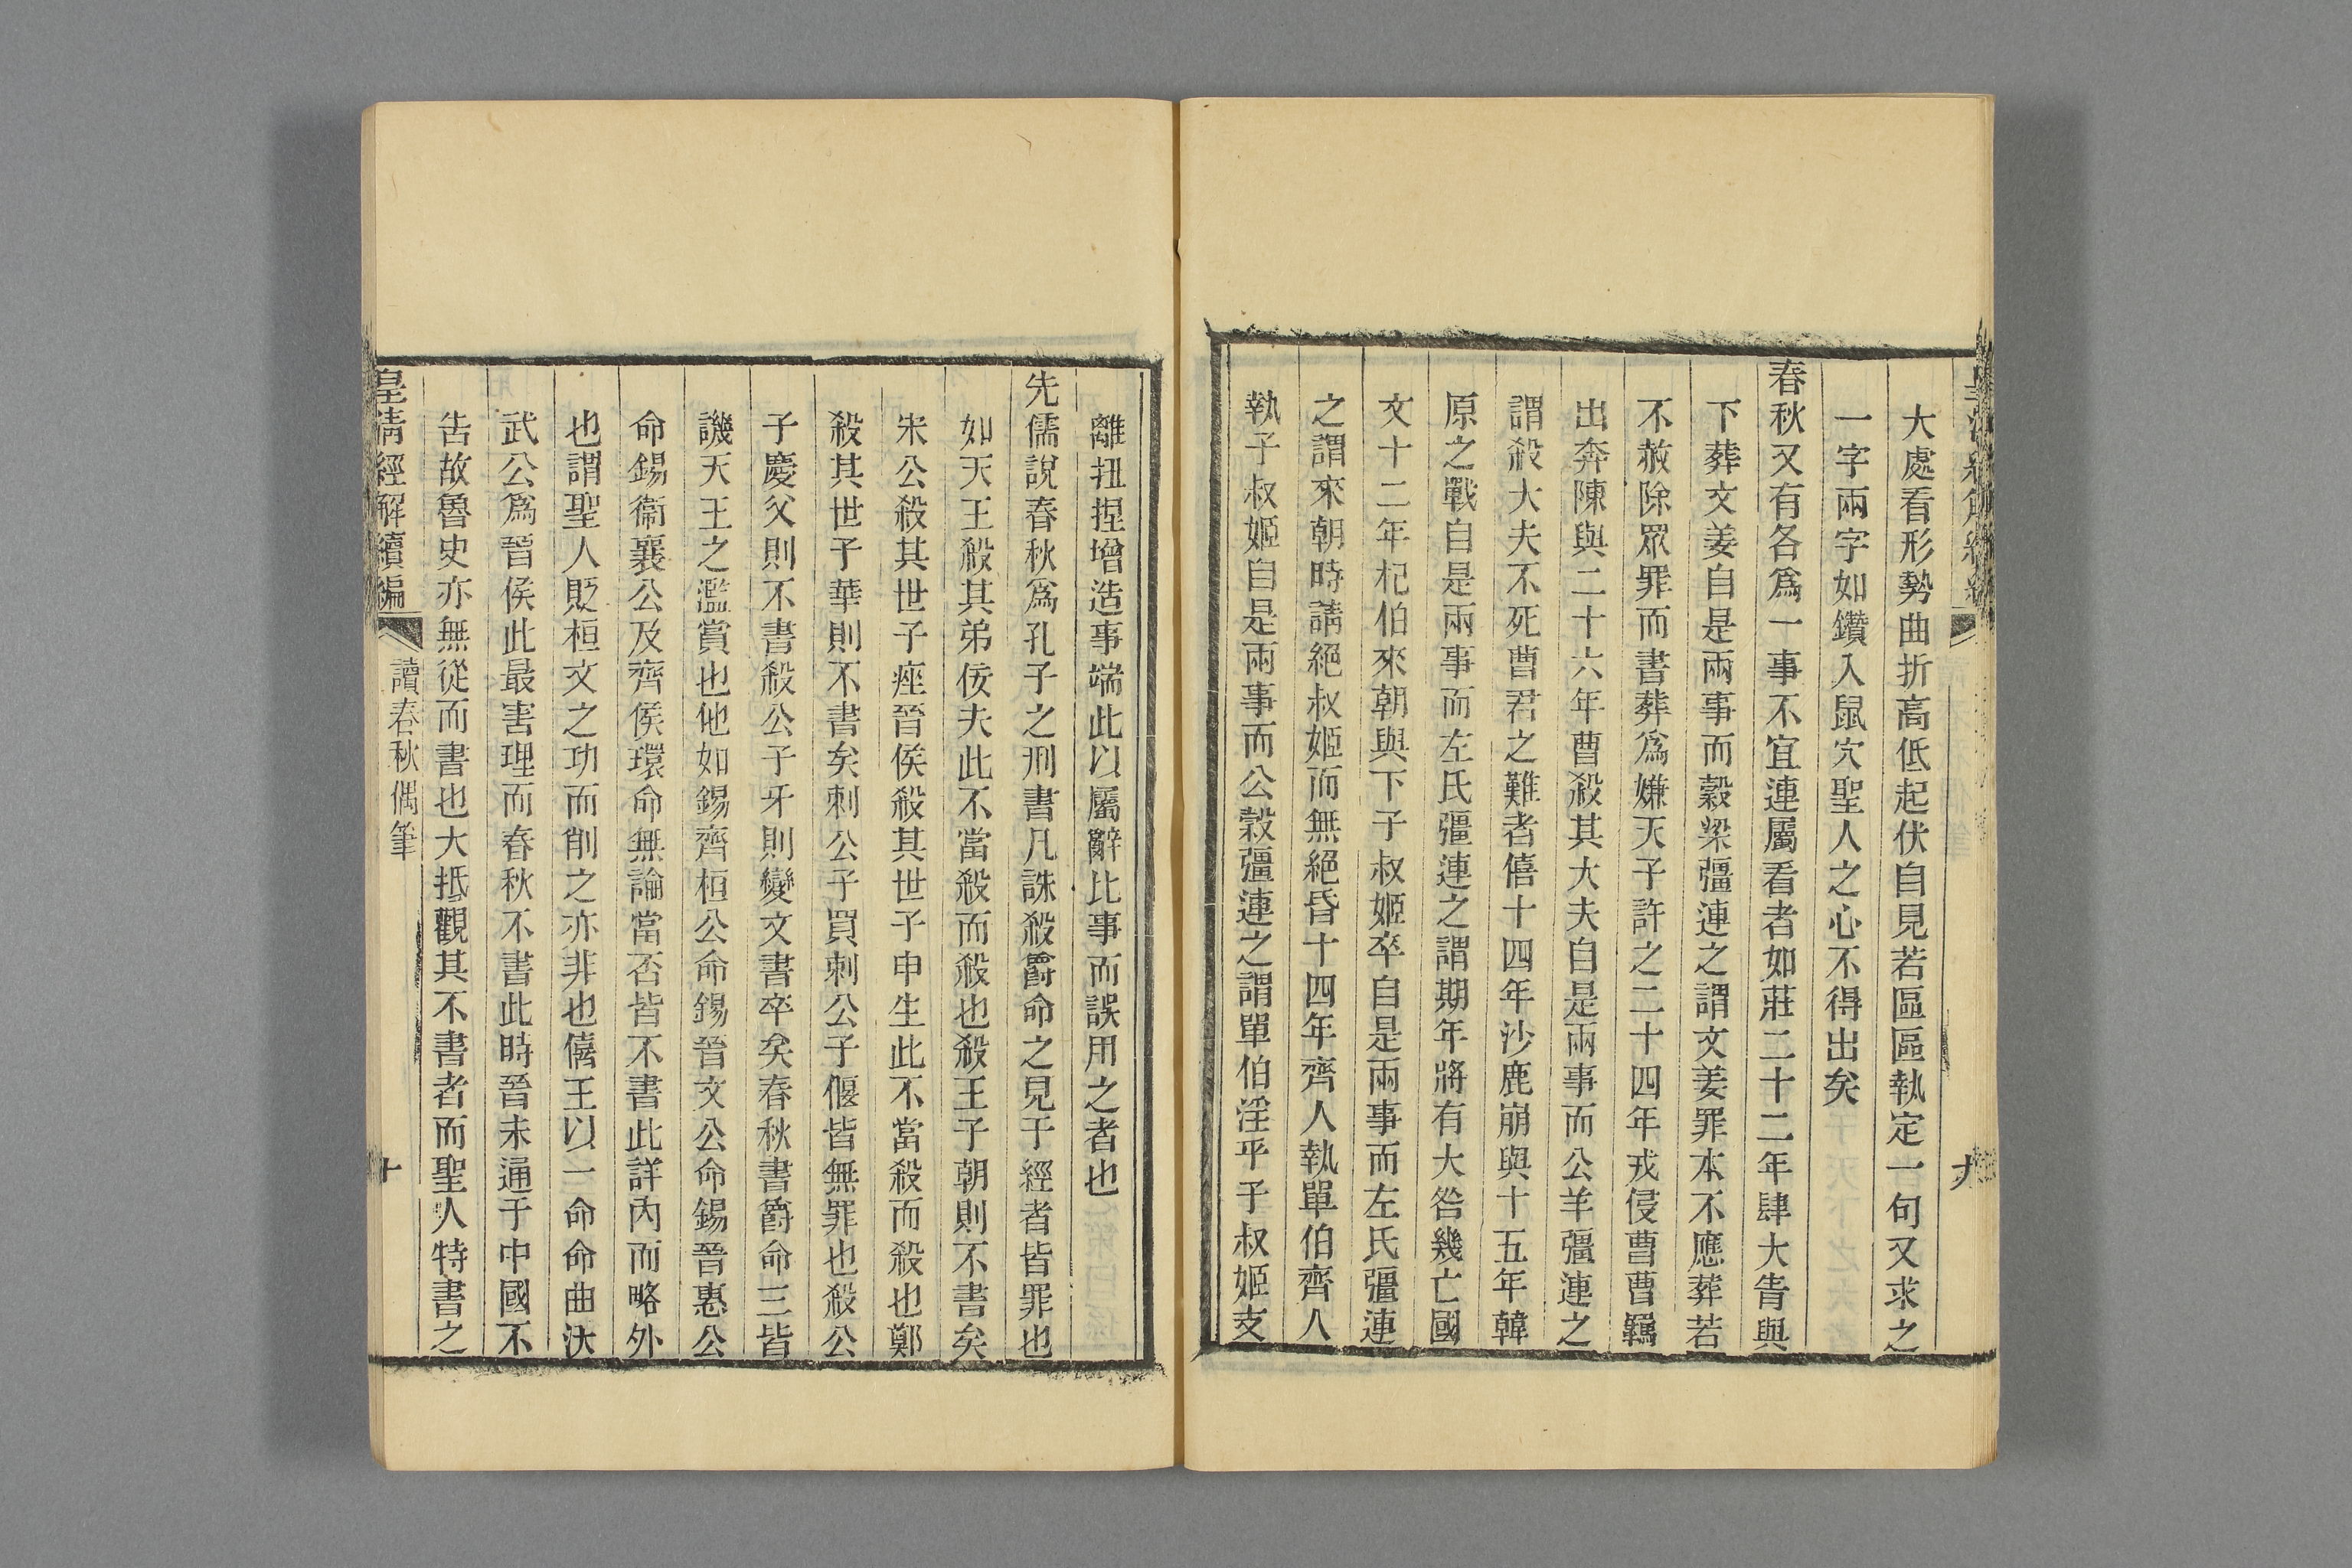 大處看形勢曲折高低起伏自見若區區執定一句又求之
一字兩字如鑽入鼠穴聖人之心不得出矣
春秋又有各爲一事不宜連屬看者如莊二十二年肆大眚與
下葬文姜自是兩事而穀梁彊連之謂文姜罪本不應葬若
不赦除眾罪而書葬爲嫌天子許之二十四年戎侵曹曹羈
出奔陳與二十六年曹殺其大夫自是兩事而公羊彊連之
謂殺大夫不死曹君之難者僖十四年沙鹿崩與十五年韓
原之戰自是兩事而左氏彊連之謂期年將有大咎幾亡國
文十二年杞伯來朝與下子叔姬卒自是兩事而左氏彊連
之謂來朝時請絕叔姬而無絕昏十四年齊人執單伯齊人
執子叔姬自是兩事而公穀彊連之謂單伯淫乎子叔姬支
離扭捏增造事端此以屬辭比事而誤用之者也
先儒說春秋爲孔子之刑書凡誅殺爵命之見于經者皆罪也
如天王殺其弟佞夫此不當殺而殺也殺王子朝則不書矣
宋公殺其世子痤晉侯殺其世子申生此不當殺而殺也鄭
殺其世子華則不書矣刺公子買刺公子偃皆無罪也殺公
子慶父則不書殺公子牙則變文書卒矣春秋書爵命三皆
譏天王之濫賞也他如錫齊桓公命錫晉文公命錫晉惠公
命錫衞襄公及齊侯環命無論當否皆不書此詳內而略外
也謂聖人貶桓文之功而削之亦非也僖王以一命命曲沃
武公爲晉侯此最害理而春秋不書此時晉未通于中國不
告故魯史亦無從而書也大抵觀其不書者而聖人特書之
皇清經解續編 讀春秋偶筆 十